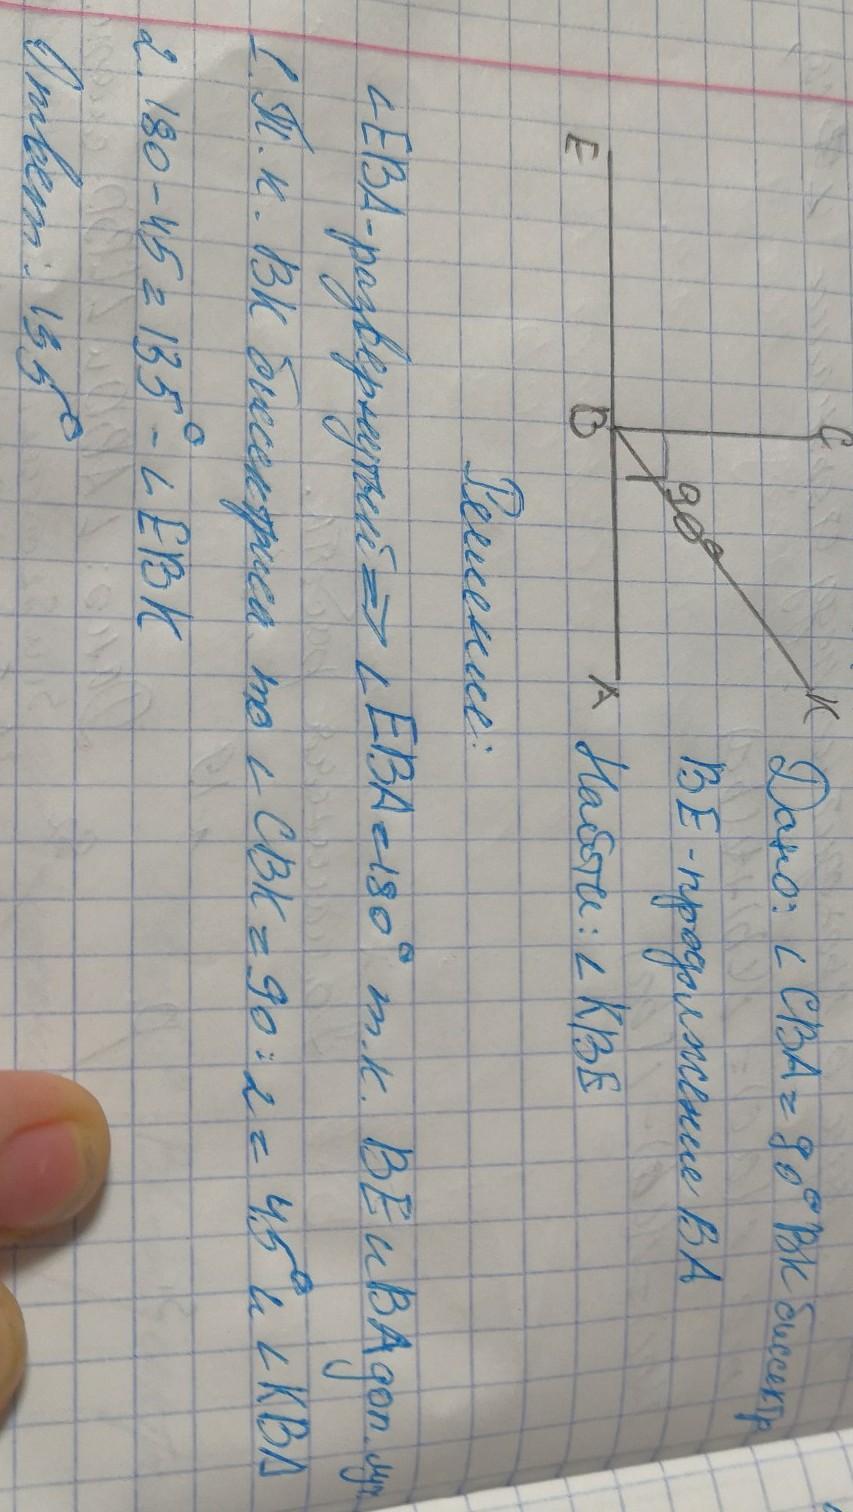 Дано: ∠CBA = 90° BK биссектр
BE - продолжение BA
Найти: ∠KBE
C
K
90°
E
B
A
Решение:
∠EBA - развернутый ⇒ ∠EBA = 180° т.к. BE и BA доп. луч
1. Т.к. BK биссектриса то ∠CBK = 90 : 2 = 45° и ∠KBA
2. 180 - 45 = 135° - ∠EBK
Ответ: 135°